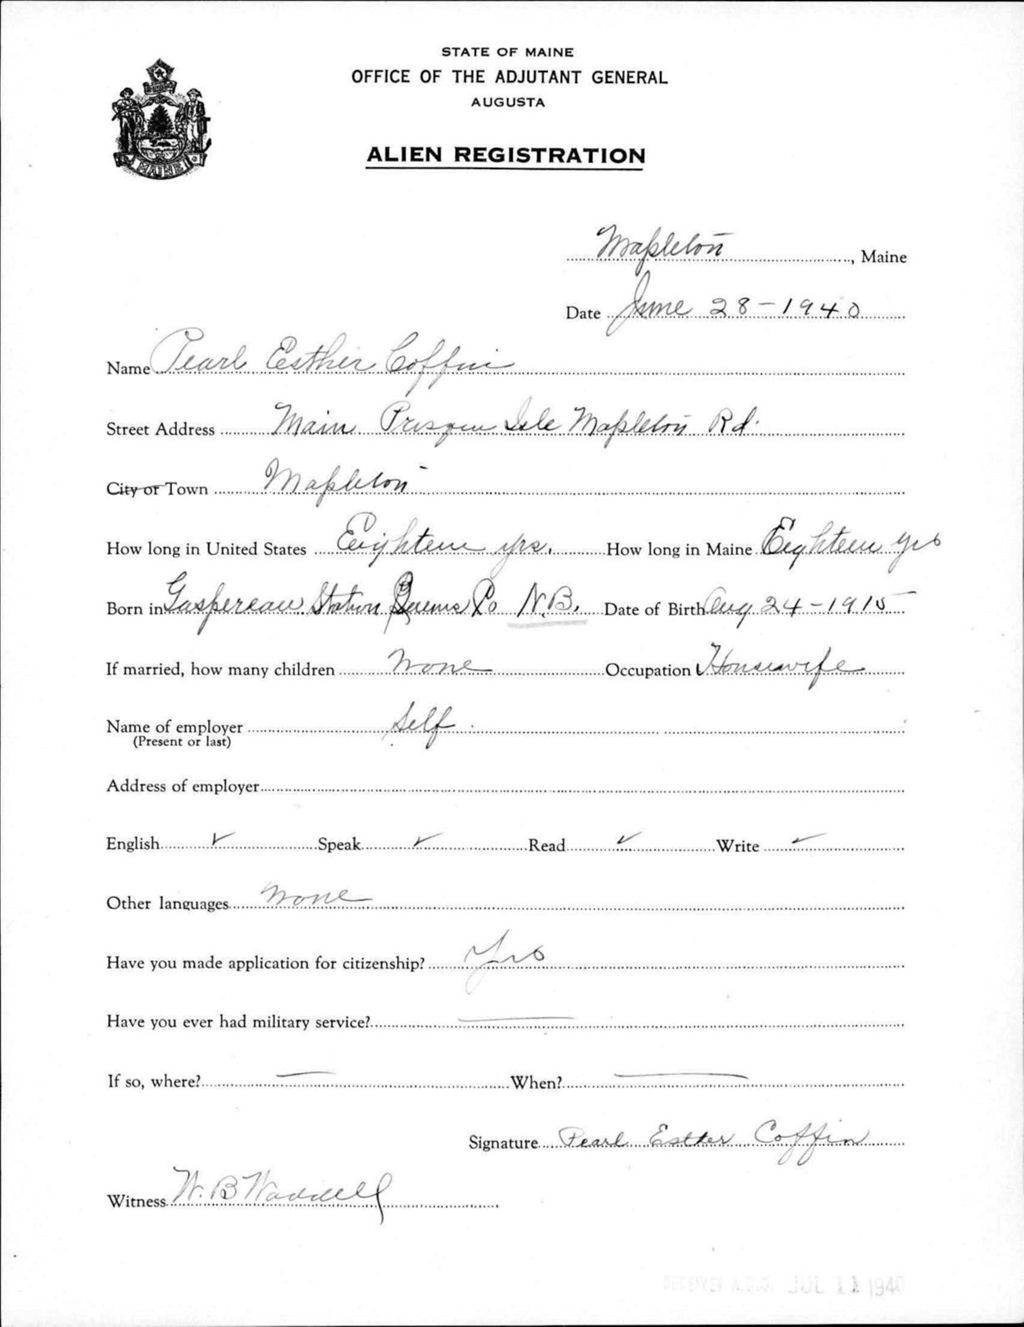 STATE OF MAINE
OFFICE OF THE ADJUTANT GENERAL
AUGUSTA
ALIEN REGISTRATION
MAINE
Mapleton, Maine
Date June 28-1940
Name Pearl Esther Coffin
Street Address Main Presque Isle Mapleton Rd.
City or Town Mapleton
How long in United States Eighteen yrs. How long in Maine Eighteen yrs
Born in Gaspereau Station Queens Co N.B. Date of Birth Aug 24-1915
If married, how many children None Occupation Housewife
Name of employer Self
(Present or last)
Address of employer
English ✓ Speak ✓ Read ✓ Write ✓
Other languages None
Have you made application for citizenship? Yes
Have you ever had military service? —
If so, where? — When? —
Signature Pearl Esther Coffin
Witness W. B Waddell
RECEIVED A.G.O. JUL 11 1940